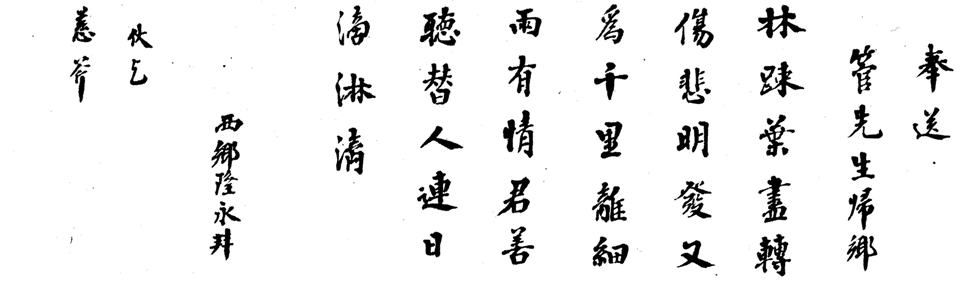 奉送
菅先生帰郷
林踈葉盡轉
傷悲明發又
爲千里離細
雨有情君善
聴替人連日
滴淋漓
西郷隆永拜
伏乞
慈斧